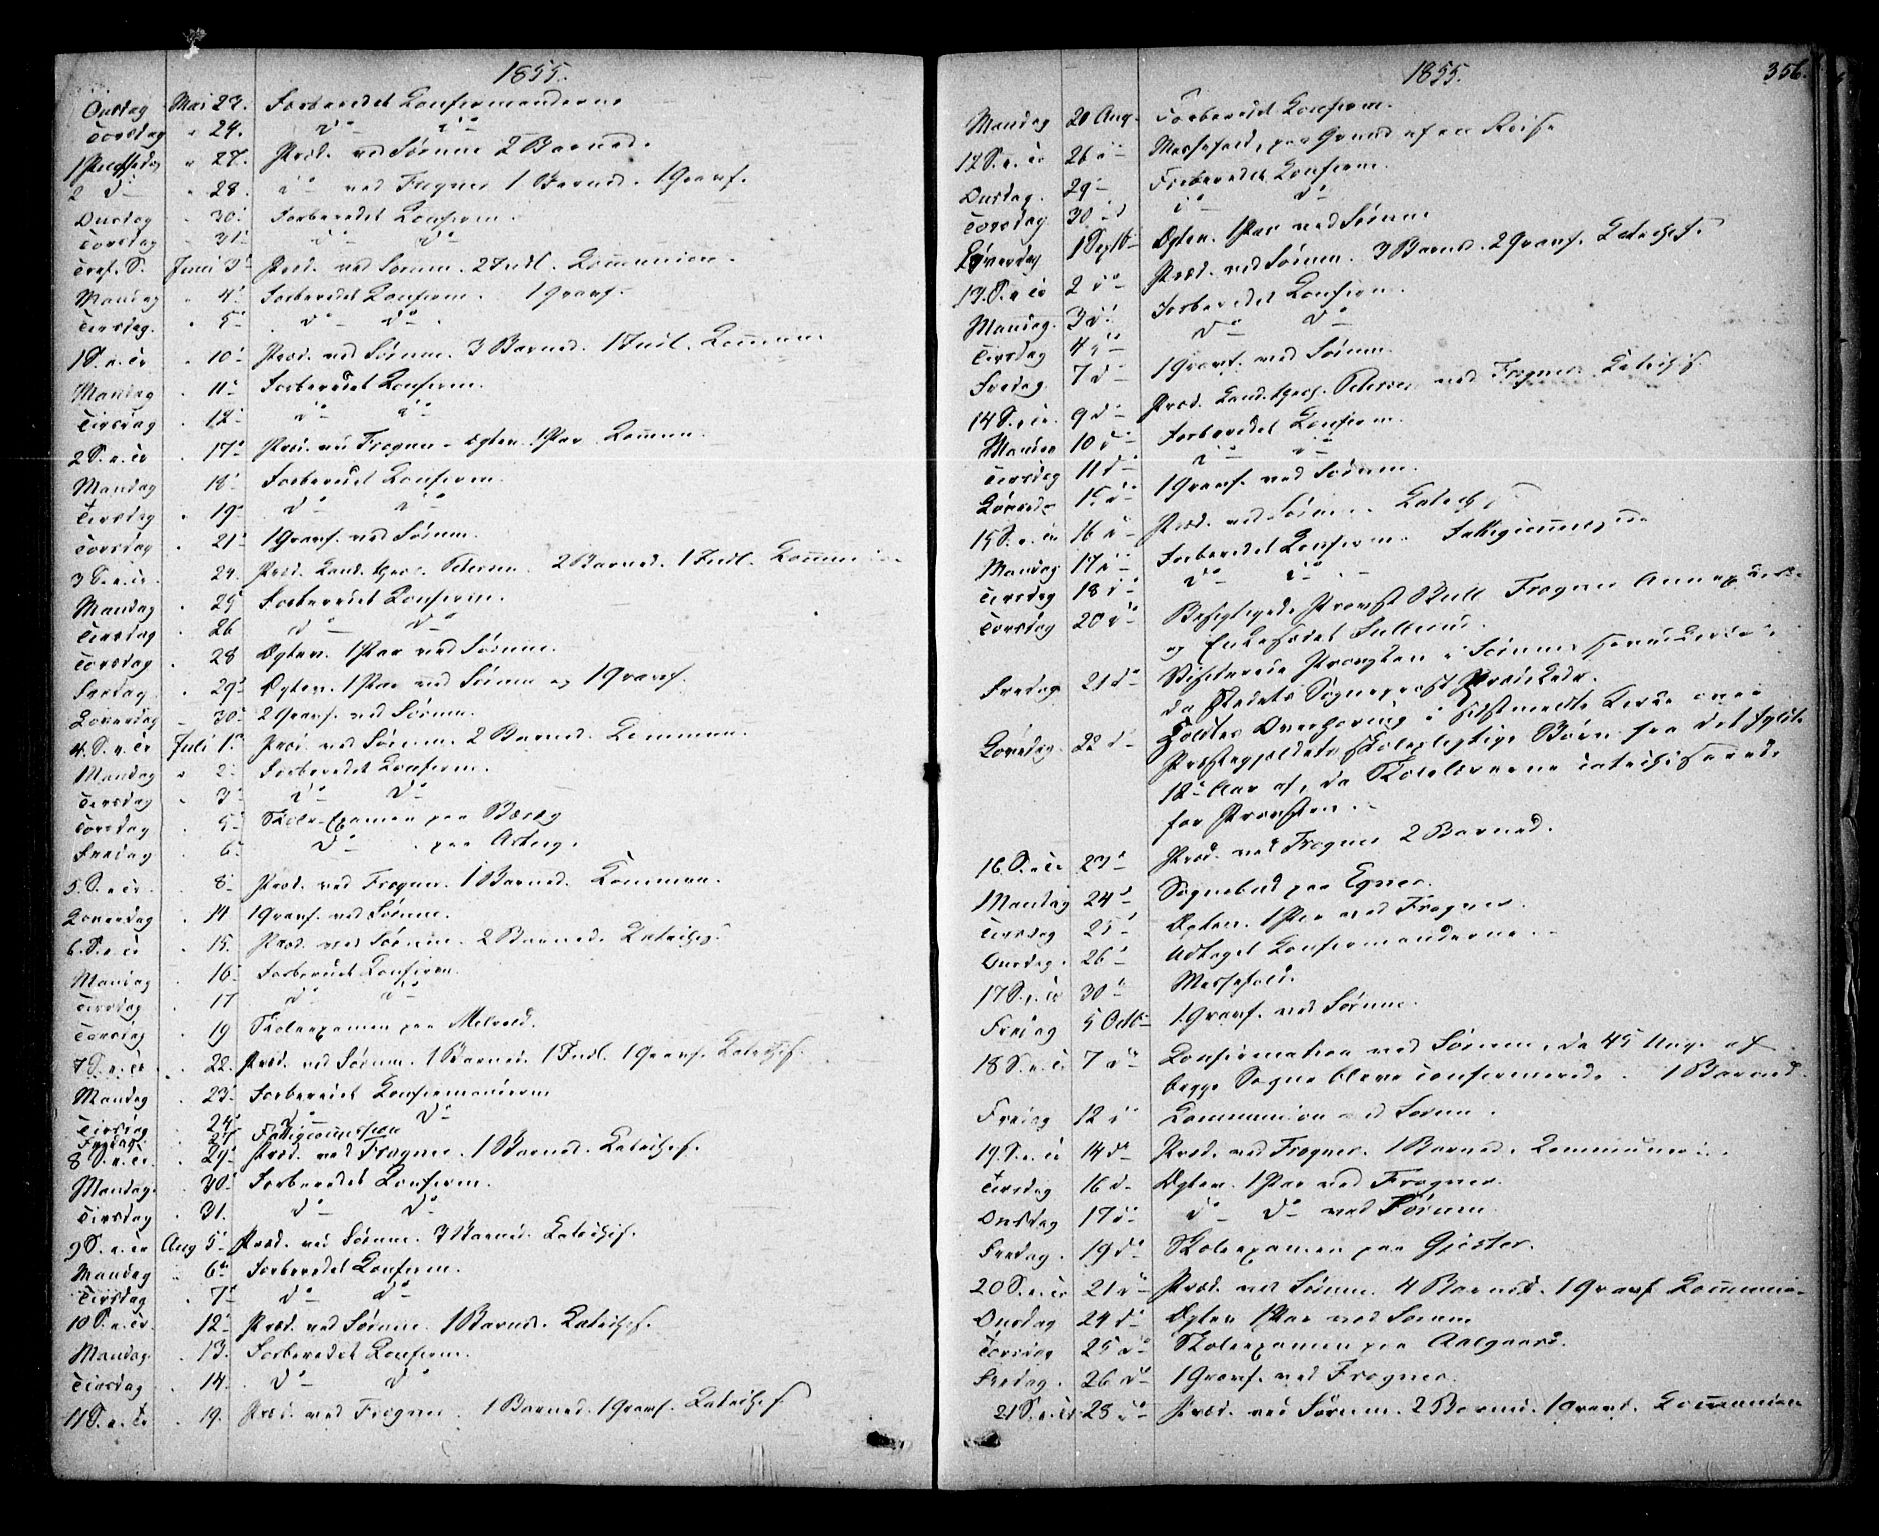 1855.
Onsdag Mai 23. Forberedet Confirmanderne
Torsdag " 24. do do
1 Pintsedag " 27. Præd. ved Sørum 2 Barned.
2 do " 28. do ved Frogner 1 Barned. 1 Gravf.
Onsdag " 30. Forberedet Confirm.
Torsdag " 31. do do
Tref. S. Juni 3. Præd. ved Sørum. 2 Indl. Communion.
Mandag " 4. Forberedet Confirm. 1 Gravf.
Tirsdag. " 5. do do
1 S. e. Tr. " 10. Præd. ved Sørum. 3 Barned. 1 Indl. Commun.
Mandag " 11. Forberedet Confirm.
Tirsdag " 12. do do
2 S. e. Tr " 17. Præd. ved Frogner. Egtev. 1 Par. Commun.
Mandag 18. Forberedet Confirm.
Tirsdag " 19. do do
Torsdag " 21. 1 Gravf. ved Sørum.
3 S. e. Tr. 24. Præd. Cand. theol. Petersen. 2 Barned. 1 Indl. Commun
Mandag " 25. Forberedet Confirm.
Tirsdag " 26 do do
Torsdag " 28 Egtev. 1 Par ved Sørum.
Fredag " 29. Egtev. 1 Par ved Sørum og 1 Gravf.
Løverdag " 30. 2 Gravf. ved Sørum.
4 S. e. Tr Juli 1. Præd. ved Sørum. 2 Barned. Commun.
Mandag " 2. Forberedet Confirm.
Tirsdag " 3. do do
Torsdag " 5. Skole-Examen paa
Fredag " 6. do paa Asberg.
5. S. e. Tr. " 8. Præd. ved Frogner. 1 Barned. Commun.
Løverdag " 14 1 Gravf. ved Sørum.
6. S. e. Tr 15. Præd. ved Sørum. 2 Barned. Catechis.
Mandag " 16. Forberedet Confirm.
Tirsdag " 17 do do
Torsdag " 19 Skoleexamen paa Melvold.
7 S. e. Tr. " 22. Præd. ved Sørum. 1 Barned. 1 Indl. 1 Gravf. Catechis.
Mandag " 23. Forberedet Confirmanderne
Tirsdag 24. do do
Fredag. " 27. Fattigcommission
8 S. e. Tr. " 29. Præd. ved Frogner. 1 Barned. Catechis.
Mandag. " 30. Forberedet Confirm.
Tirsdag " 31. do do
9 S. e. Tr Aug 5. Præd. ved Sørum. 3 Barned. Catechis.
Mandag " 6. Forberedet Confirm.
Tirsdag " 7. do do
10 S. e. Tr. 12. Præd. ved Sørum. 1 Barned. Catechis.
Mandag. " 13. Forberedet Confirm.
Tirsdag " 14. do do
11 S. e. Tr " 19. Præd. ved Frogner. 1 Barned. 1 Gravf. Catechis
1855. 356.
Mandag 20 Aug. Forberedet Confirm.
12 S. e. Tr 26 do Messefald, paa Grund af en Reise
Onsdag. 29. Forberedet Confirm.
Torsdag 30 do do do
Løverdag 1 Septb. Egtev. 1 Par ved Sørum
13. S. e Tr 2 do Præd. ved Sørum. 3 Barned. 2 Gravf. Catechis.
Mandag. 3 do Forberedet Confirm.
Tirsdag 4 do do do
Fredag. 7 do 1 Gravf. ved Sørum.
14 S. e. Tr. 9 do Præd. Cand. theol. Petersen ved Frogner. Catechis.
Mandag 10 do Forberedet Confirm.
Tirsdag 11 do do do
Løverdag 15 do 1 Gravf. ved Sørum.
15 S. e. Tr 16 do Præd. ved Sørum. Catechis.
Mandag 17 do Forberedet Confirm. Fattigcommission
Tirsdag 18 do do do
Torsdag 20 do Besigtigede Provst Bull Frogner Annexkirke
og Enkesædet
Fredag 21 do Visiterede Provsten i Sørum Hovedkirke,
da Stedets Sognepræst prædikede.
Løverdag 22 do Holdtes Overhøring i Kirke over
Præstegjeldets skolepligtige Børn fra det fyldte
12te Aar af, da Skolelærerne catechiserede
for Provsten.
16 S. e Tr 23. Præd. ved Frogner 2 Barned.
Mandag 24. Sognebud paa Egner.
Tirsdag 25. Egtev. 1 Par ved Frogner.
Onsdag. 26. Udtaget Confirmanderne.
17 S. e. Tr 30. Messefald.
Fredag 5 Octb. 1 Gravf. ved Sørum.
18 S. e. Tr 7 do Confirmation ved Sørum, da 45 Unge af
begge Sogne bleve confirmerede. 1 Barned.
Fredag 12 do Communion ved Sørum.
19. S. e. Tr 14 do Præd. ved Frogner. 1 Barned. Communion.
Tirsdag 16 do Egtev. 1 Par ved Frogner.
Onsdag 17 do do do ved Sørum.
Fredag. 19 do Skoleexamen paa Gjester.
20 S. e. Tr 21 do Præd. ved Sørum. 4 Barned. 1 Gravf. Communion
Onsdag 24 do Egtev. 1 Par ved Sørum
Torsdag 25 do Skoleexamen paa Aalgaard.
Fredag. 26 do 1 Gravf. ved Frogner.
21 S. e. Tr 28 do Præd. ved Sørum. 2 Barned. 1 Gravf. Communion